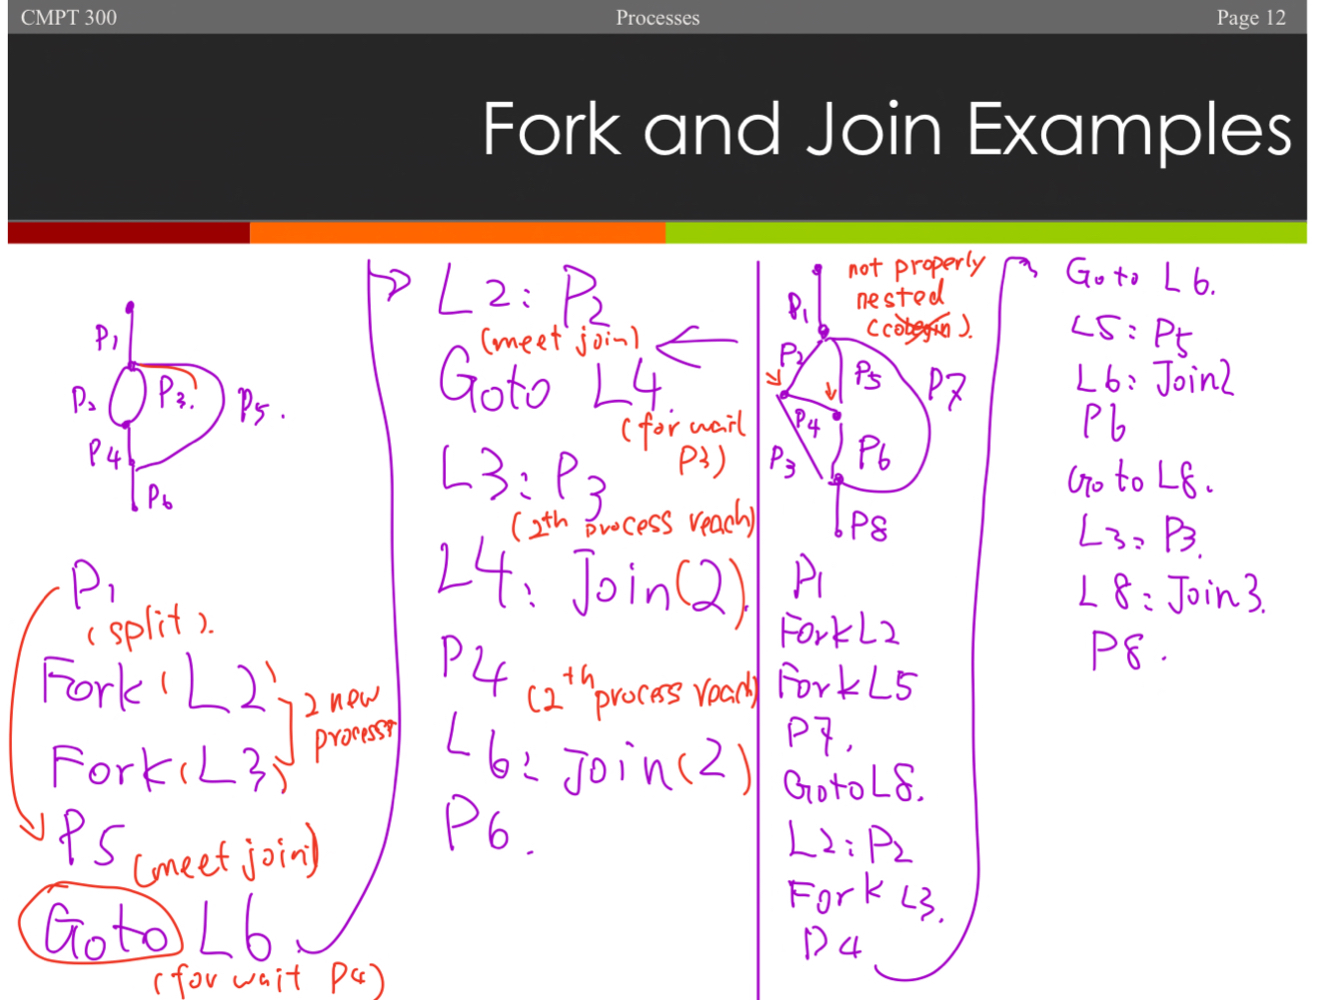 CMPT 300
Processes
Page 12
Fork and Join Examples
P1
P2
P3.
P5.
P4
P6
P1
(split).
Fork(L2)
Fork(L3)
2 new
process
P5 (meet join)
Goto L6
(for wait P4)
L2: P2
(meet join)
Goto L4
(for wait
P3)
L3: P3
(2th process reach)
L4: Join(2)
P4
(2th process reach)
L6: Join(2)
P6.
not properly
nested
(cobegin).
P1
P2
P5
P7
P4
P3
P6
P8
P1
Fork L2
Fork L5
P7.
Goto L8.
L2: P2
Fork L3.
P4
Goto L6.
L5: P5
L6: Join2
P6
Go to L8.
L3: P3.
L8: Join3.
P8.